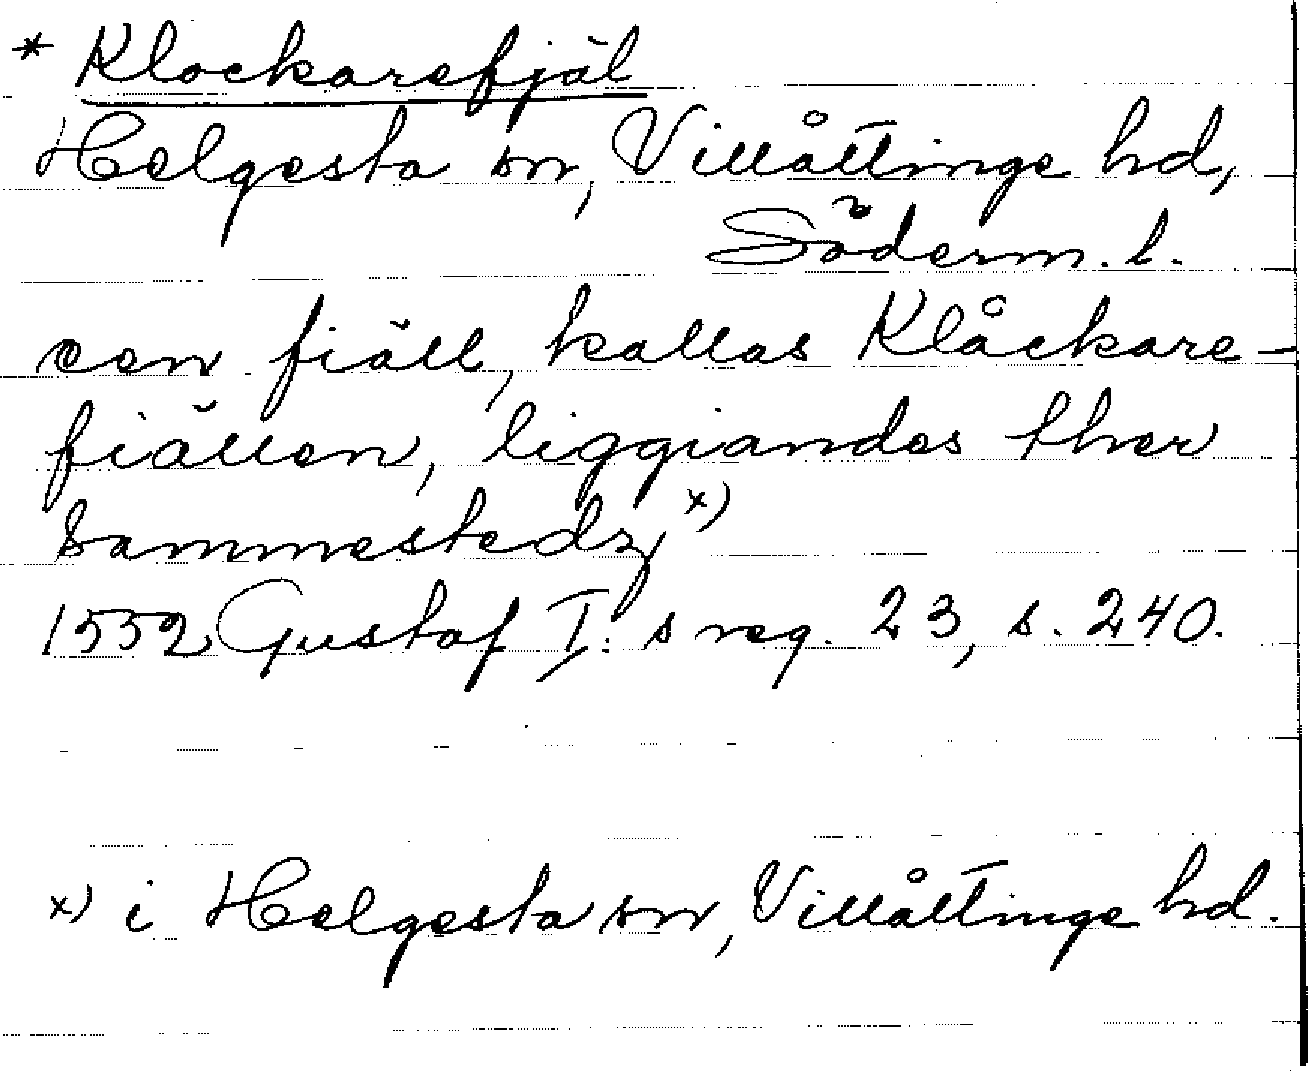 * Klockarefjäl
Helgesta sn, Villåttinge hd,
Söderm. l.
een fiäll, kallas Klåckare-
fiällen, liggiandes ther
sammestedz x)
1552 Gustaf I:s reg. 23, s. 240.
x) i Helgesta sn, Villåttinge hd.